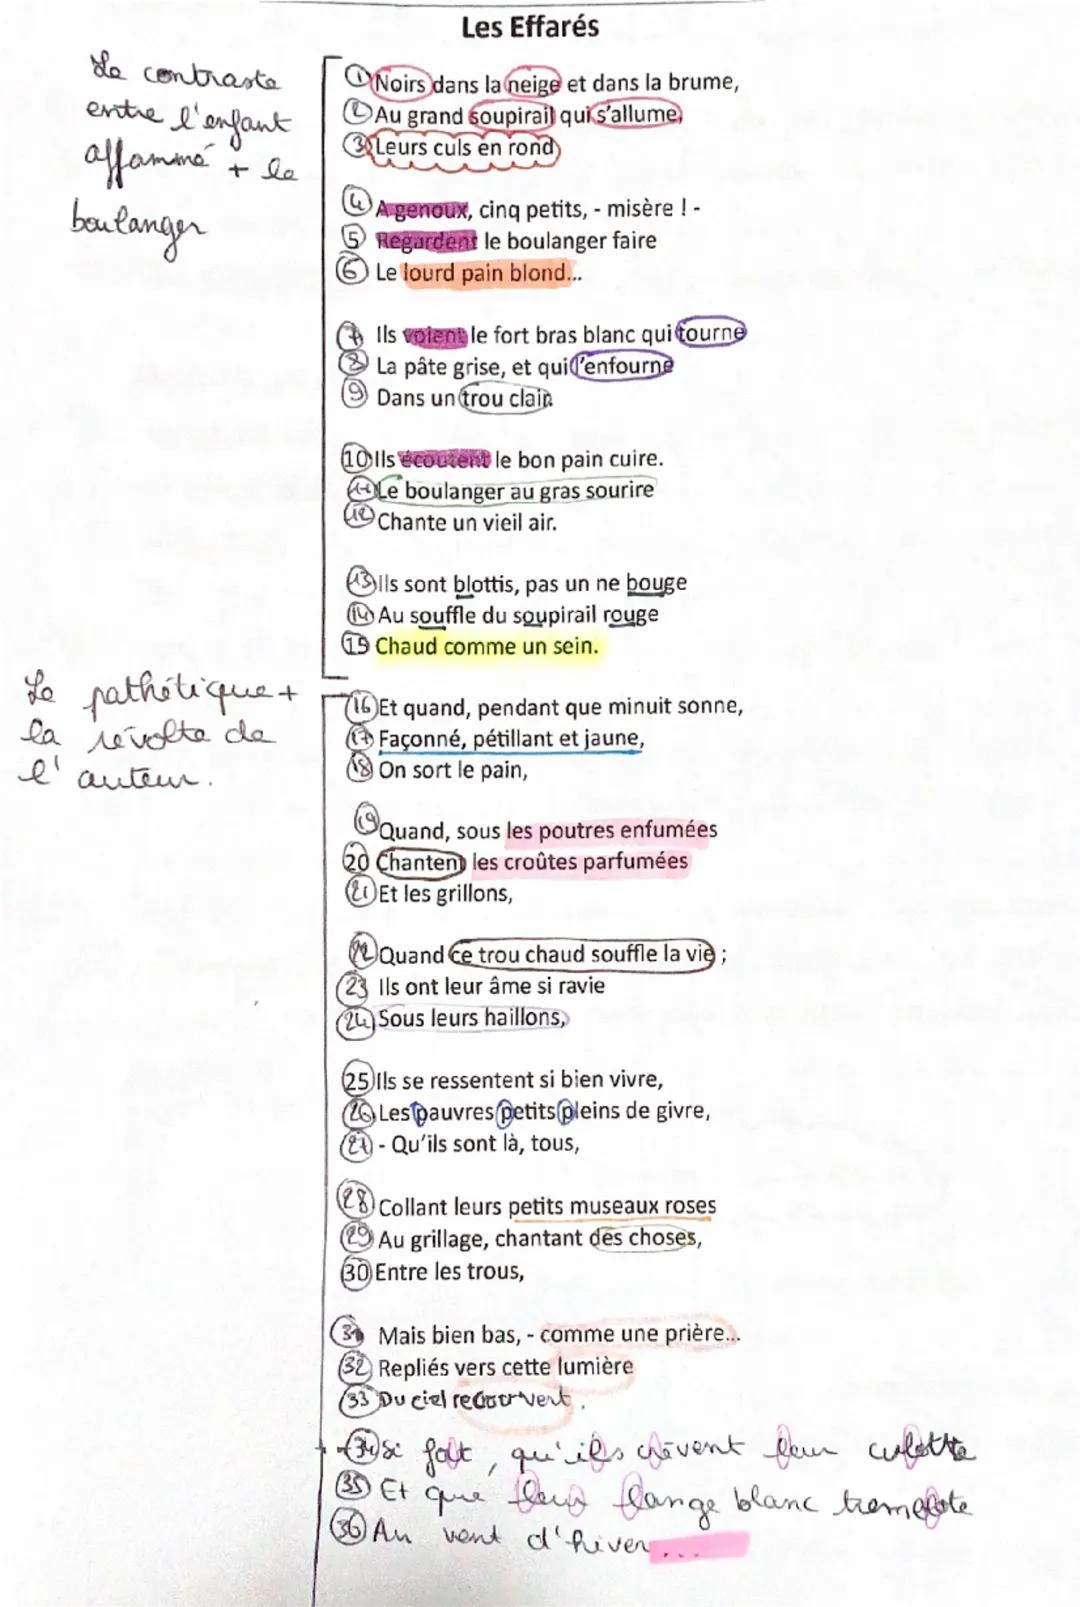 Les Effarés
Le contraste
entre l'enfant
affammé + le
boulanger
① Noirs dans la neige et dans la brume,
② Au grand soupirail qui s'allume,
③ Leurs culs en rond
④ A genoux, cinq petits, - misère ! -
5 Regardent le boulanger faire
⑥ Le lourd pain blond...
⑦ Ils voient le fort bras blanc qui tourne
⑧ La pâte grise, et qui l'enfourne
⑨ Dans un trou clair.
10 Ils écoutent le bon pain cuire.
11 Le boulanger au gras sourire
12 Chante un vieil air.
13 Ils sont blottis, pas un ne bouge
14 Au souffle du soupirail rouge
15 Chaud comme un sein.
Le pathétique +
la révolte de
l'auteur.
16 Et quand, pendant que minuit sonne,
17 Façonné, pétillant et jaune,
18 On sort le pain,
19 Quand, sous les poutres enfumées
20 Chantent les croûtes parfumées
21 Et les grillons,
22 Quand ce trou chaud souffle la vie ;
23 Ils ont leur âme si ravie
24 Sous leurs haillons,
25 Ils se ressentent si bien vivre,
26 Les pauvres petits pleins de givre,
27 - Qu'ils sont là, tous,
28 Collant leurs petits museaux roses
29 Au grillage, chantant des choses,
30 Entre les trous,
31 Mais bien bas, - comme une prière...
32 Repliés vers cette lumière
33 Du ciel rerouvert.
34 Si fort, qu'ils crèvent leur culotte
35 Et que leur lange blanc tremblote
36 Au vent d'hiver...